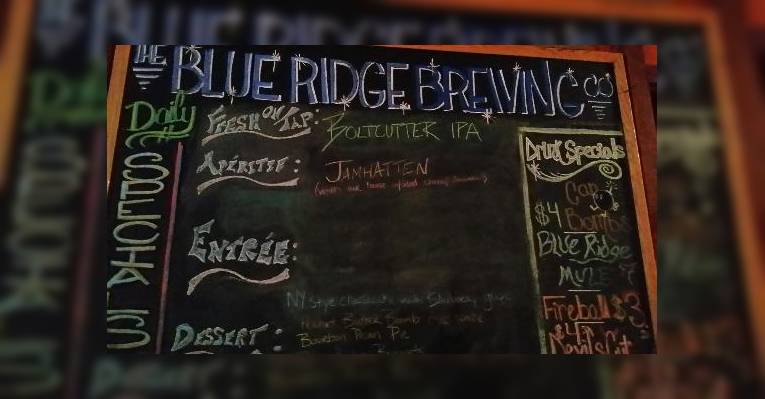 THE BLUE RIDGE BREWING CO
Daily
SPECIALS
FRESH ON TAP: BOLTCUTTER IPA
APÉRITIF: JAMHATTEN
ENTRÉE:
NY Style Cheesecake with Blueberry
Peanut Butter Bomb
DESSERT: Bourbon Pecan Pie
Drink Specials
Cap
$4 Bombs
Blue Ridge
MULE 7
Fireball $3
$4
Devil's Cut